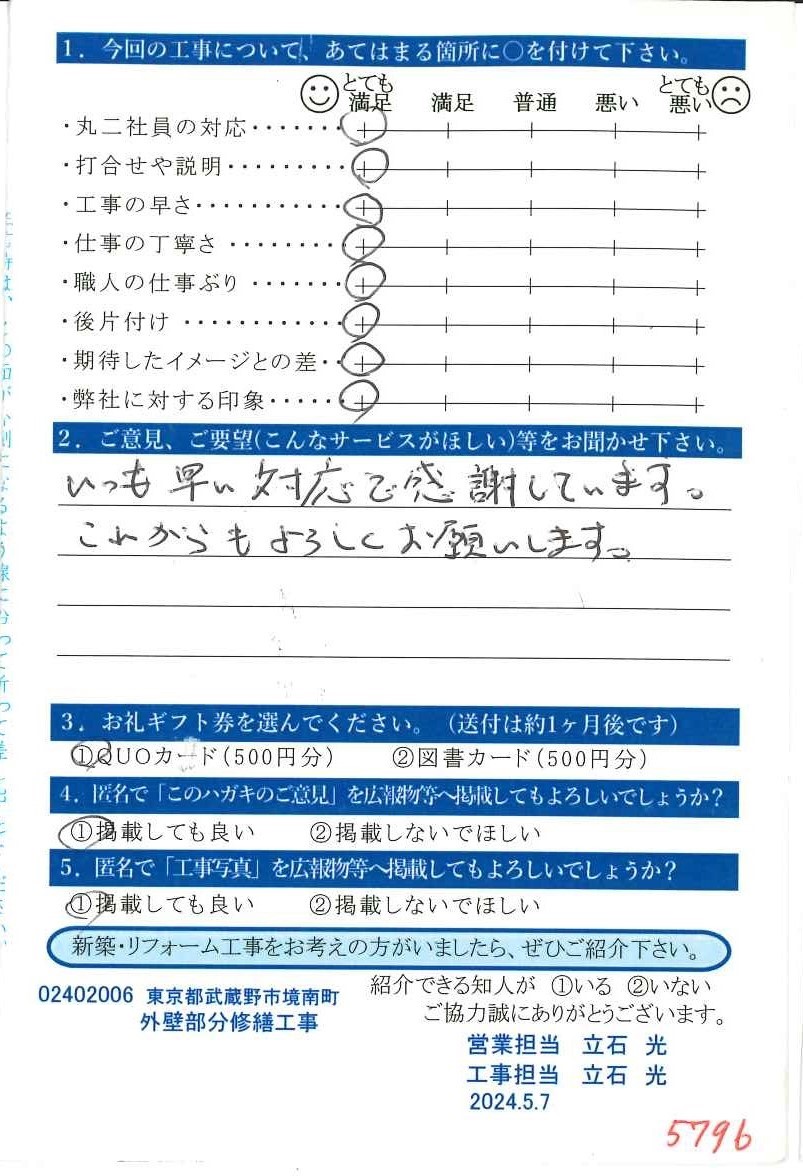 1．今回の工事について、あてはまる箇所に○を付けて下さい。
とても満足 満足 普通 悪い とても悪い
・丸二社員の対応・・・・・・・
・打合せや説明・・・・・・・・・
・工事の早さ・・・・・・・・・・・
・仕事の丁寧さ ・・・・・・・・
・職人の仕事ぶり ・・・・・・・
・後片付け ・・・・・・・・・・・・
・期待したイメージとの差・・
・弊社に対する印象・・・・・
2．ご意見、ご要望(こんなサービスがほしい)等をお聞かせ下さい。
いつも早い対応で感謝しています。
これからもよろしくお願いします。
3．お礼ギフト券を選んでください。（送付は約1ヶ月後です）
①QUOカード(500円分) ②図書カード(500円分)
4．匿名で「このハガキのご意見」を広報物等へ掲載してもよろしいでしょうか？
①掲載しても良い ②掲載しないでほしい
5．匿名で「工事写真」を広報物等へ掲載してもよろしいでしょうか？
①掲載しても良い ②掲載しないでほしい
新築・リフォーム工事をお考えの方がいましたら、ぜひご紹介下さい。
紹介できる知人が ①いる ②いない
ご協力誠にありがとうございます。
02402006 東京都武蔵野市境南町
外壁部分修繕工事
営業担当 立石 光
工事担当 立石 光
2024.5.7
5796